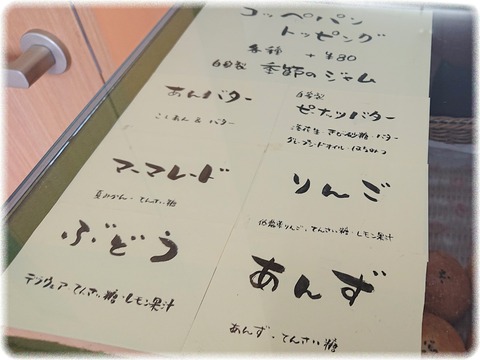 コッペパン
トッピング
各種 + ¥80
自家製 季節のジャム
あんバター
こしあん & バター
自家製
ピーナツバター
落花生・きび砂糖・バター
グレープシードオイル・はちみつ
マーマレード
夏みかん・てんさい糖
りんご
低農薬りんご・てんさい糖・レモン果汁
ぶどう
デラウェア てんさい糖・レモン果汁
あんず
あんず・てんさい糖